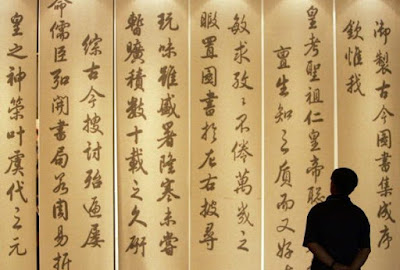 御製古今圖書集成序
欽惟我
皇考聖祖仁皇帝聰
亶生知之質而又好
敏求孜孜不倦萬幾之
暇置圖書於左右披尋
玩味雖盛暑隆寒未嘗
暫曠積數十載之久研
綜古今搜討殆遍屢
命儒臣弘開書局若周易折
皇之神策叶虞代之元